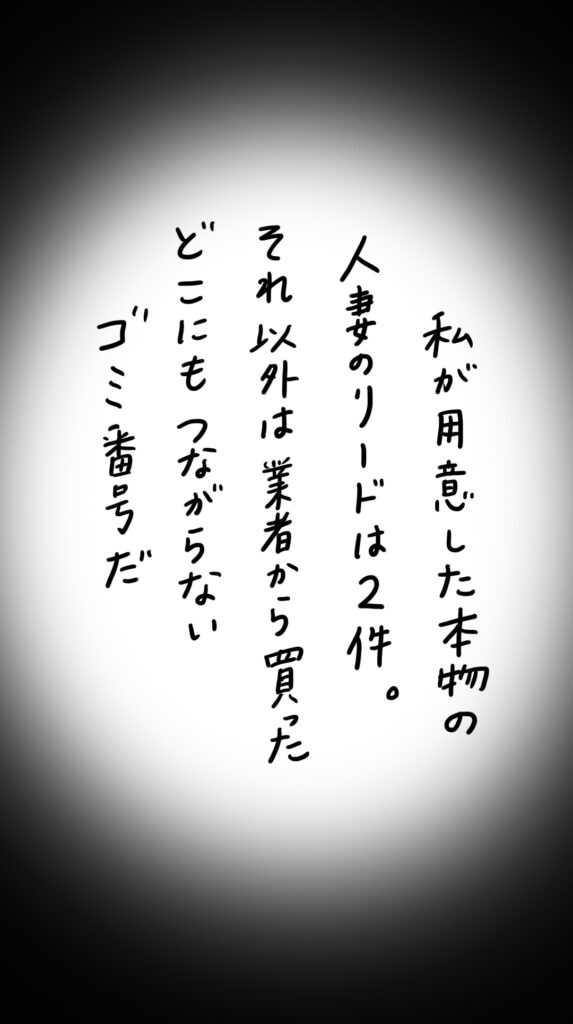 私が用意した本物の
人妻のリードは2件。
それ以外は業者から買った
どこにもつながらない
ゴミ番号だ